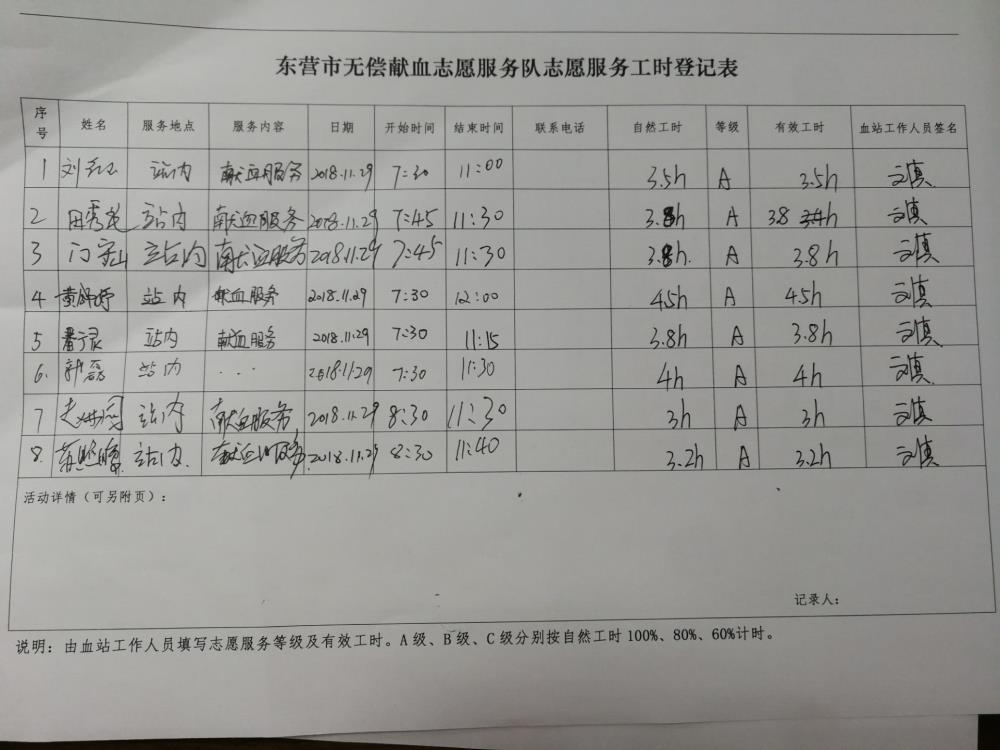 东营市无偿献血志愿服务队志愿服务工时登记表
序号 姓名 服务地点 服务内容 日期 开始时间 结束时间 联系电话 自然工时 等级 有效工时 血站工作人员签名
1 站内 献血服务 2018.11.29 7:30 11:00 3.5h A 3.5h
2 田秀 站内 献血服务 2018.11.29 7:45 11:30 3.8h A 3.8 h
3 站内 献血服务 2018.11.29 7:45 11:30 3.8h. A 3.8h
4 黄 站内 献血服务 2018.11.29 7:30 12:00 4.5h A 4.5h
5 站内 献血服务 2018.11.29 7:30 11:15 3.8h A 3.8h
6. 郭磊 站内 ... 2018.11.29 7:30 11:30 4h A 4h
7 站内 献血服务 2018.11.29 8:30 11:30 3h A 3h
8. 站内 献血服务 2018.11.29 8:30 11:40 3.2h A 3.2h
活动详情（可另附页）：
记录人：
说明：由血站工作人员填写志愿服务等级及有效工时。A级、B级、C级分别按自然工时100%、80%、60%计时。